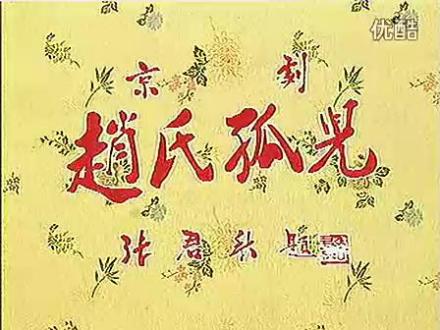 优酷
京剧
趙氏孤兒
张君秋题